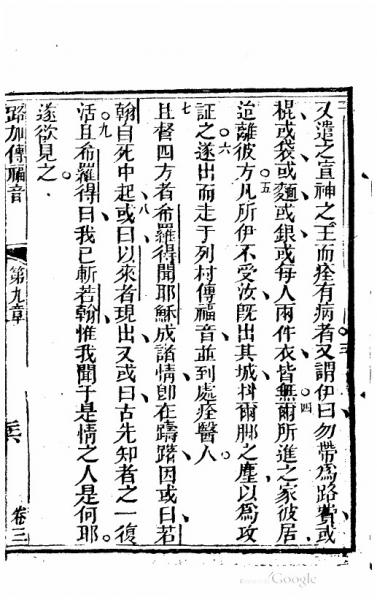 又遣之宣神之王而痊有病者又謂伊曰勿帶爲路費或
三
棍或袋或麵或銀或每人兩件衣皆無爾所進之家彼居
四
迨離彼方凡所伊不受汝旣出其城抖爾脚之塵以爲攻
五
証之遂出而走于列村傳福音並到處痊醫人
六
且督四方者希羅得聞耶穌成諸情卽在躊躇因或曰若
七
翰自死中起或曰以來者現出又或曰古先知者之一復
八
活且希羅得曰我已斬若翰惟我聞于是情之人是何耶
九
遂欲見之
路加傳福音
第九章
卷三
Google